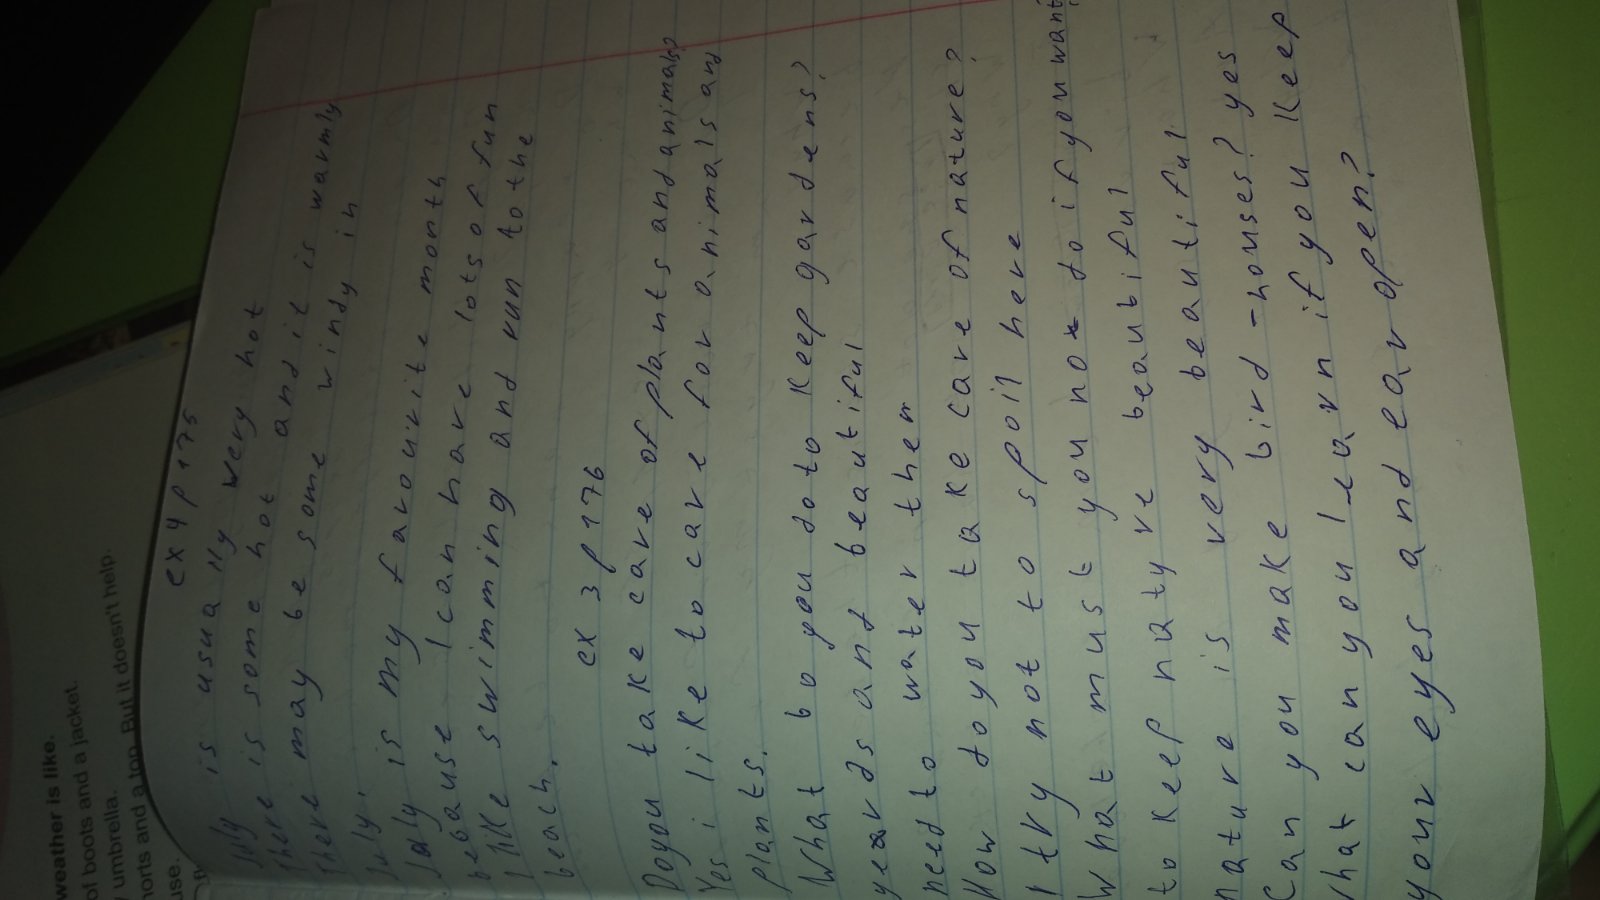 weather is like.
of boots and a jacket.
umbrella.
horts and a top. But it doesn't help.
use.
ex 4 p 175
July is usually wery hot
There is some hot and it is warmly
There may be some windy in
July.
Jaly is my favourite month
bebause I can have lots of fun
I like swimming and run to the
beach.
ex 3 p 176
Do you take care of plants and animals?
Yes i like to care for animals and
plants.
What bo you do to keep gardens?
yeards and beautiful
need to water them
How do you take care of nature?
I try not to spoil here
What must you not do if you want
to keep natyre beaubiful
nature is very beautiful
Can you make bird-houses? yes
What can you learn if you keep
your eyes and ear open?